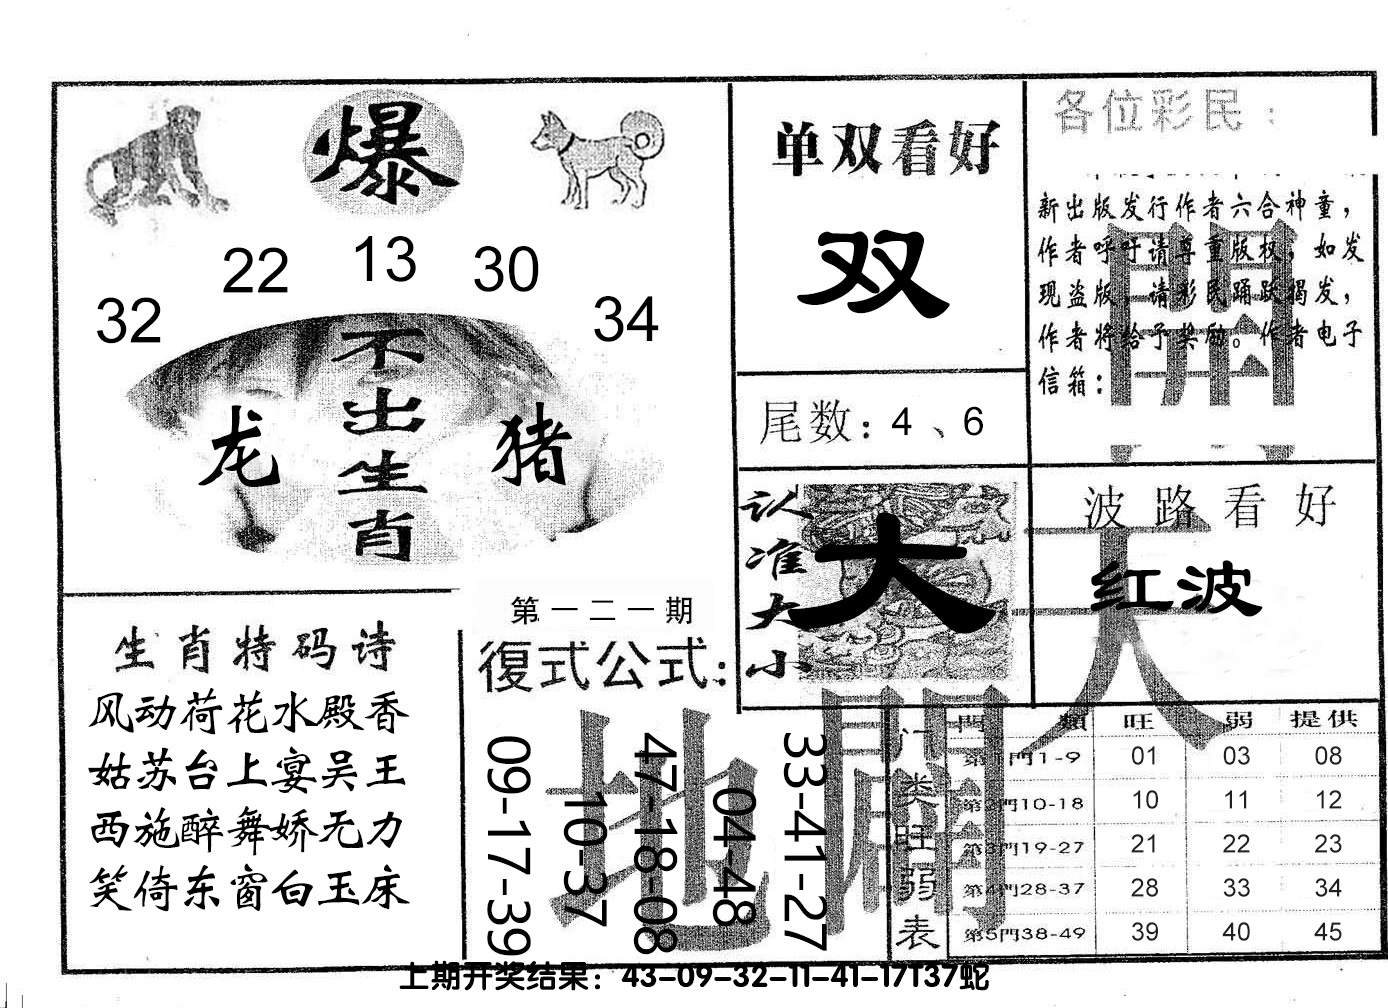 爆
22 13 30
32 34
不出生肖
龙 猪
单双看好
双
尾数：4、6
各位彩民：
新出版发行作者六合神童，
作者呼吁请尊重版权，如发
现盗版，请彩民踊跃揭发，
作者将给予奖励。作者电子
信箱：
认准大小
大
波路看好
红波
生肖特码诗
风动荷花水殿香
姑苏台上宴吴王
西施醉舞娇无力
笑倚东窗白玉床
第一二一期
復式公式：
09-17-39
10-37
47-18-08
04-48
33-41-27
天
地
開
闢
门类旺弱表
門類 旺 弱 提供
第1門1-9 01 03 08
第2門10-18 10 11 12
第3門19-27 21 22 23
第4門28-37 28 33 34
第5門38-49 39 40 45
上期开奖结果：43-09-32-11-41-17T37蛇